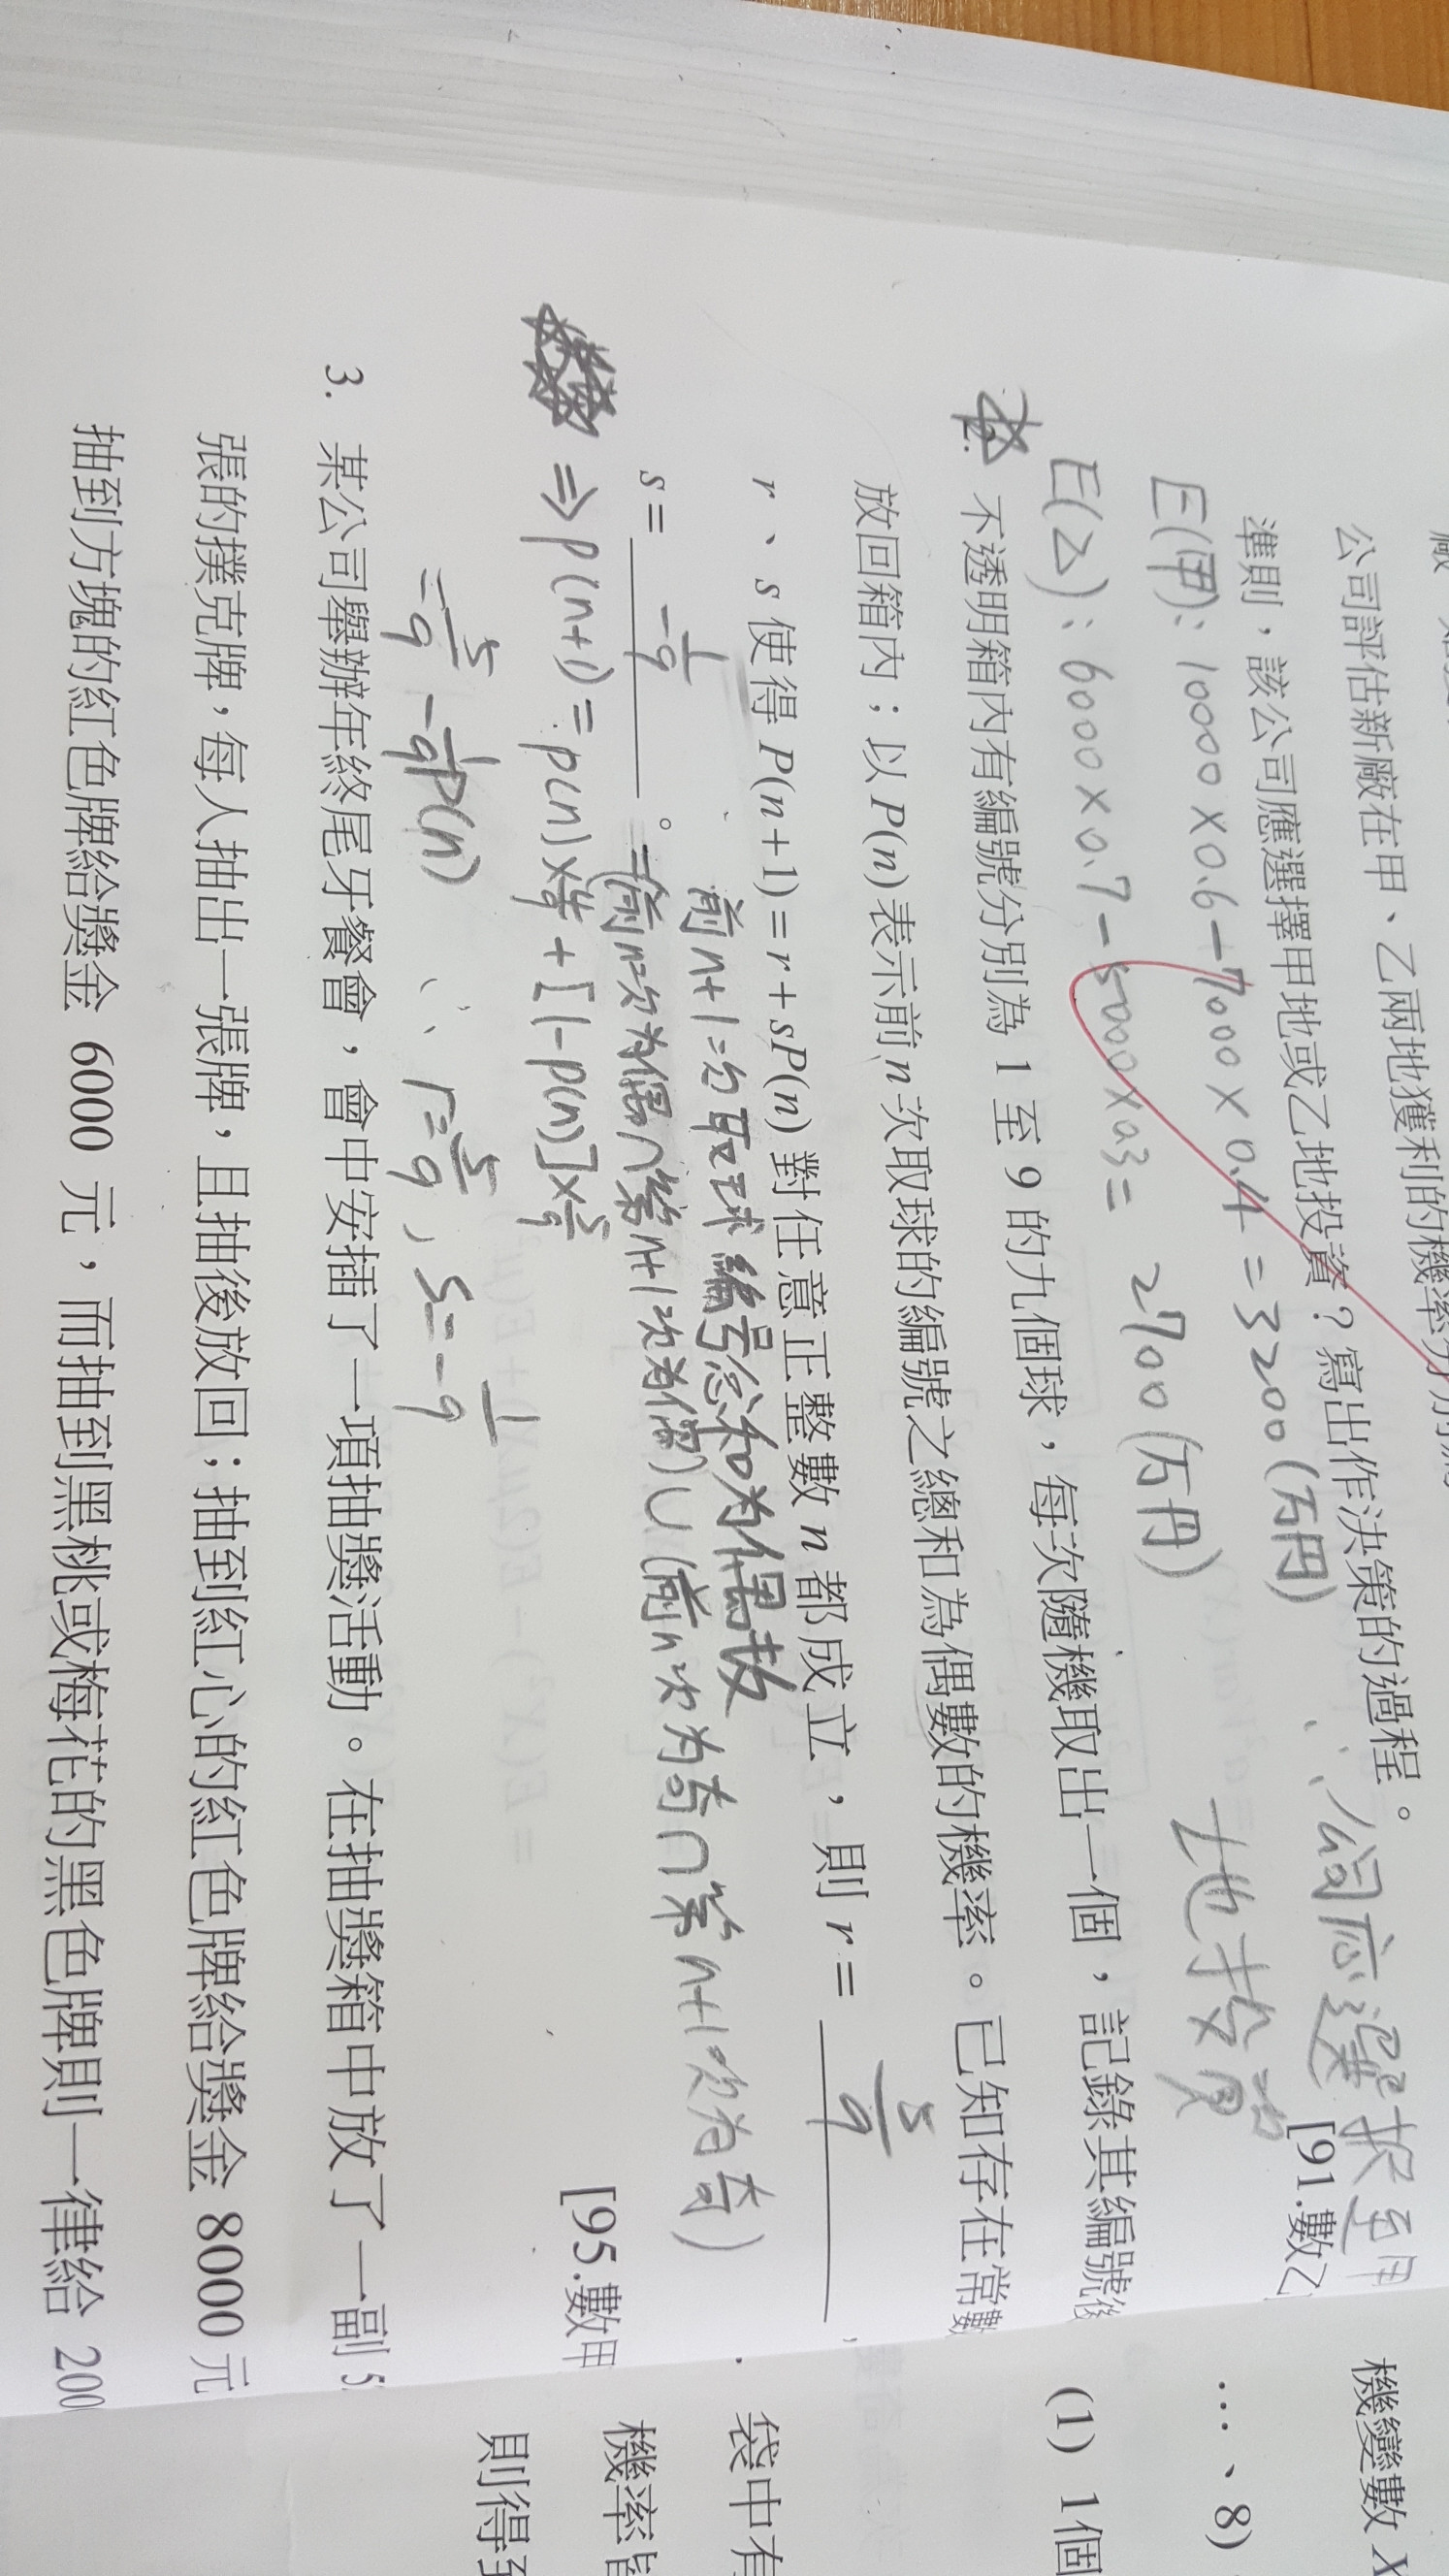 公司評估新廠在甲、乙兩地獲利的機率分別為
準則，該公司應選擇甲地或乙地投資？寫出作決策的過程。
[91.數乙
E(甲): 10000×0.6-7000×0.4=3200(万円)
∴公司应選択至甲
E(乙): 6000×0.7-5000×0.3= 2700(万円)
土地投資
2. 不透明箱內有編號分別為 1 至 9 的九個球，每次隨機取出一個，記錄其編號後
放回箱內；以 P(n) 表示前 n 次取球的編號之總和為偶數的機率。已知存在常數
r、s 使得 P(n+1)=r+sP(n) 對任意正整數 n 都成立，則 r= 5/9 ，
前n+1次取球編号总和为偶数
s= -1/9 。
=(前n次为偶∩第n+1次为偶)∪(前n次为奇∩第n+1次为奇)
[95.數甲
⇒P(n+1)=P(n)×4/9+[1-P(n)]×5/9
=5/9-1/9P(n) ∴ r=5/9, s=-1/9
3. 某公司舉辦年終尾牙餐會，會中安插了一項抽獎活動。在抽獎箱中放了一副 5
張的撲克牌，每人抽出一張牌，且抽後放回；抽到紅心的紅色牌給獎金 8000 元
抽到方塊的紅色牌給獎金 6000 元，而抽到黑桃或梅花的黑色牌則一律給 200
機變數 X
…、8)
(1) 1個
袋中有
機率皆
則得到